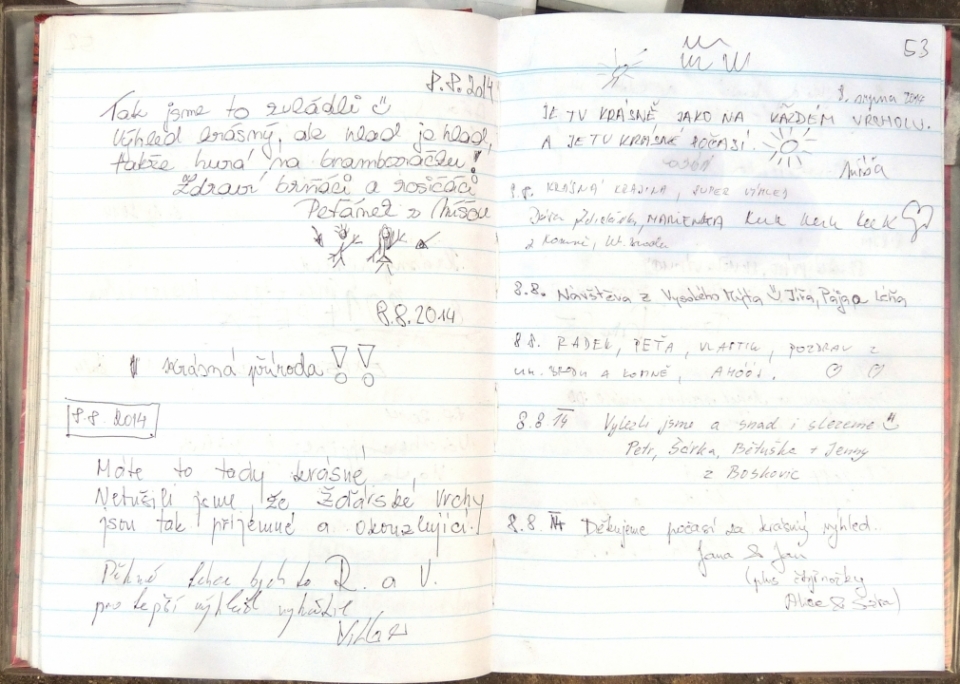 8.8.2014
Tak jsme to zvládli
Výhled krásný, ale hlad je hlad,
takže hurá na bramboračku!
Zdraví brňáci a rosičáci
Peťánek s Míšou
8.8.2014
krásná příroda !!
8.8. 2014
Máte to tady krásné
Netušili jsme, že Žďárské vrchy
jsou tak příjemné a okouzlující!
Pěkné bych to R. a V.
pro lepší výhled
53
8. srpna 2014
JE TU KRÁSNĚ JAKO NA KAŽDÉM VRCHOLU.
A JE TU KRÁSNÉ POČASÍ.
Míša
8.8. KRÁSNÁ KRAJINA, SUPER VÝHLED
MARIENKA Kuk Kuk Kuk
z Komně,
8.8. Návštěva z Vysokého Mýta Jiřa, Pája a Léňa
8.8. RADEK, PEŤA, VLASTIK, POZDRAV z
UH. BRODU A KOMNĚ, AHÓÓJ.
8.8 14 Vylezli jsme a snad i slezeme
Petr, Šárka, Bětuška + Jenny
z Boskovic
8.8. 14 Děkujeme počasí za krásný výhled.
Jana & Jan
(plus čtyřnožky
Alice & Sára)